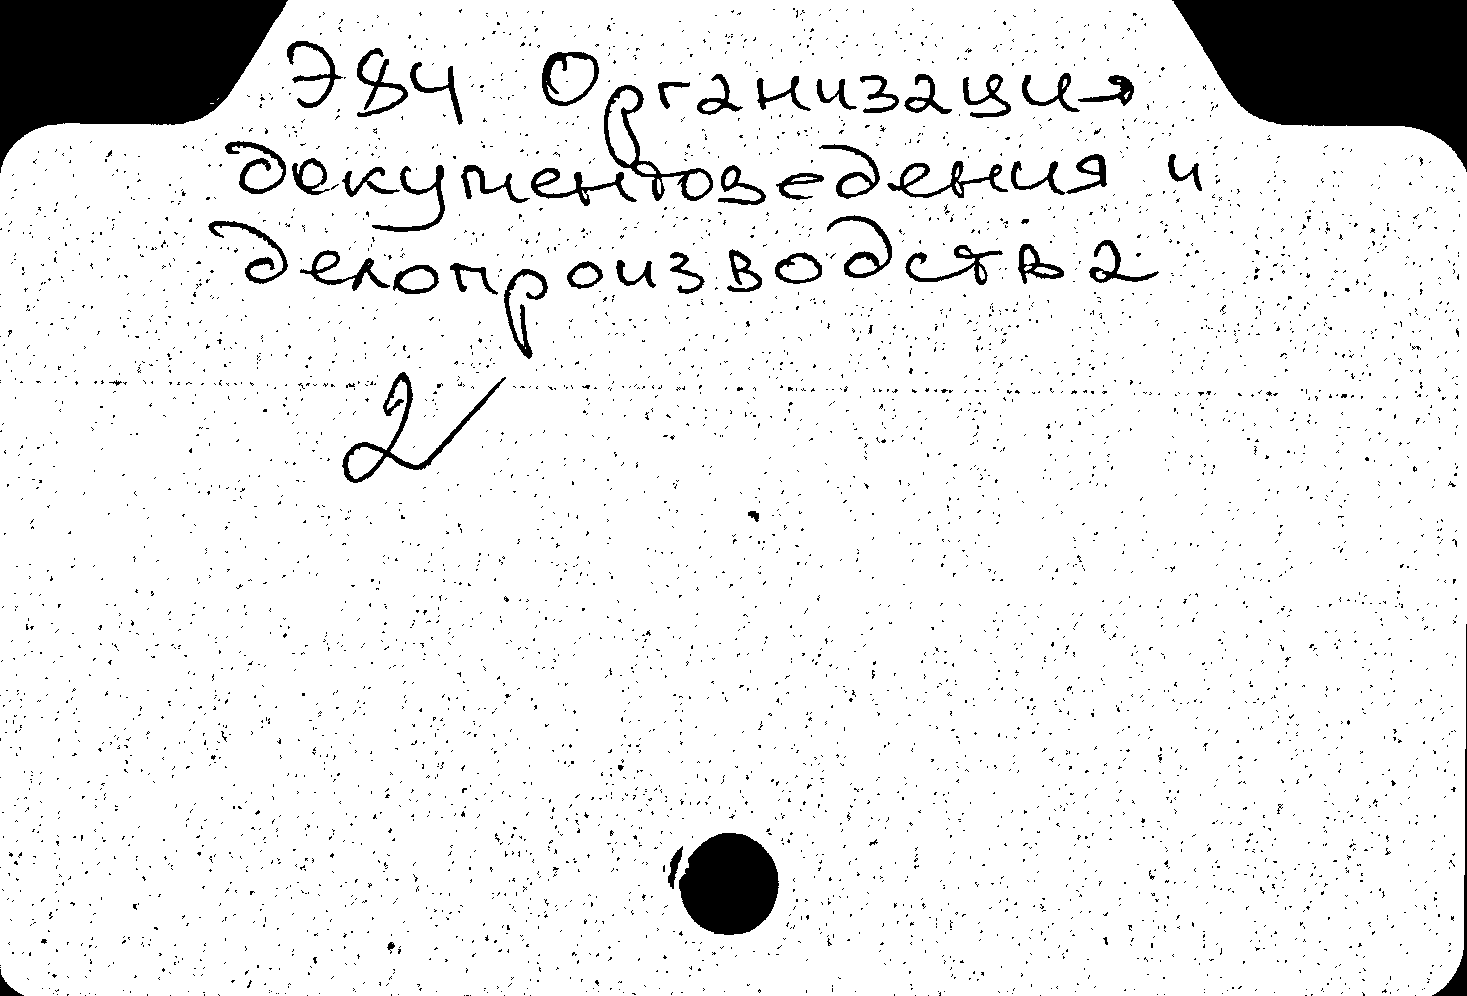 Э84 Организация
документоведения и
делопроизводства
2